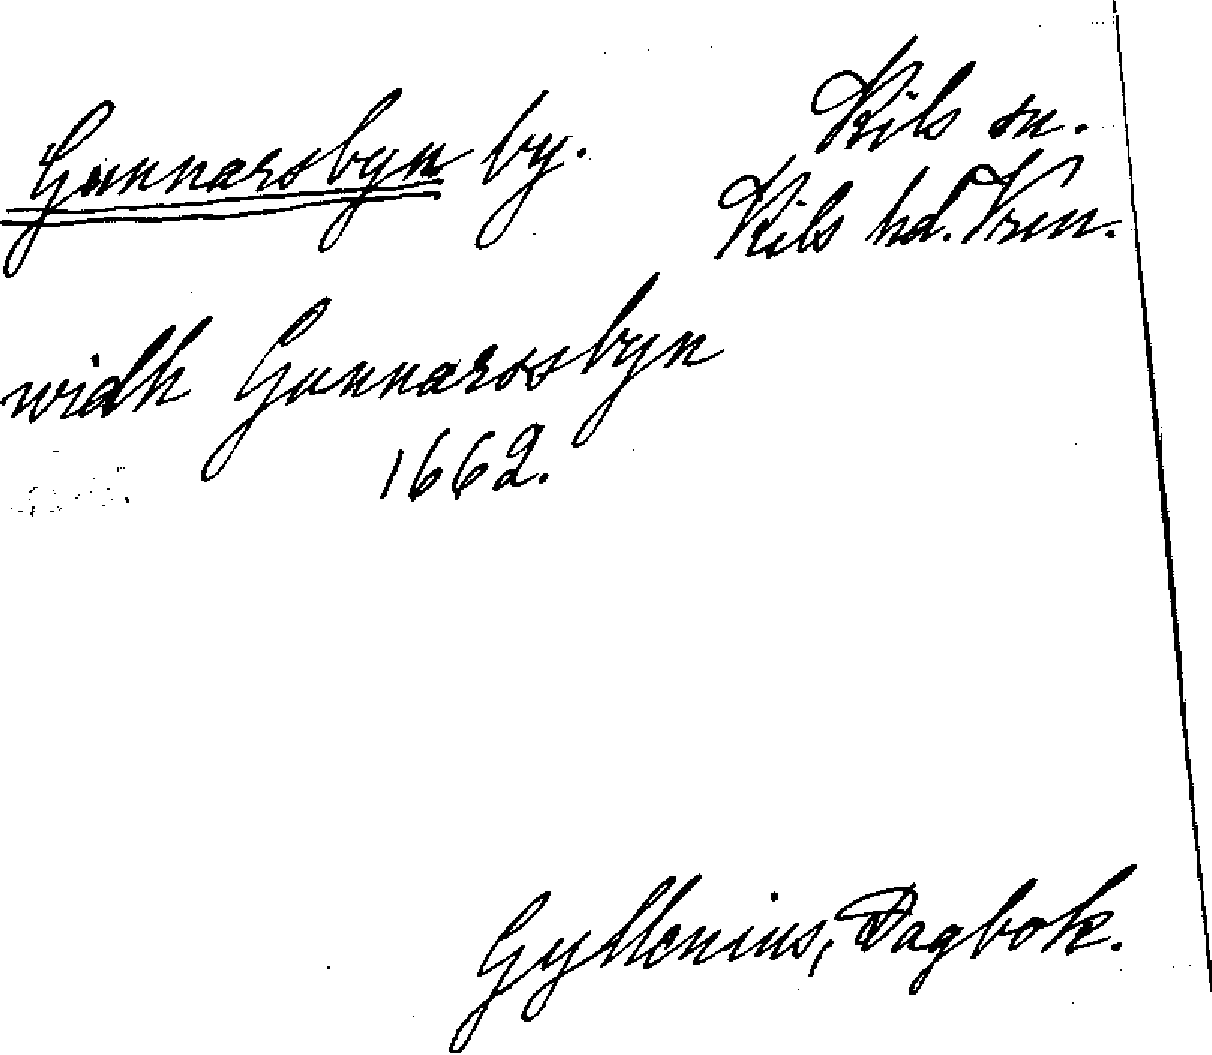 Gunnarsbyn by.
Kils sn.
Kils hd. Vrm.
widh Gunnarssbyn
1662.
Gyllenius, Dagbok.